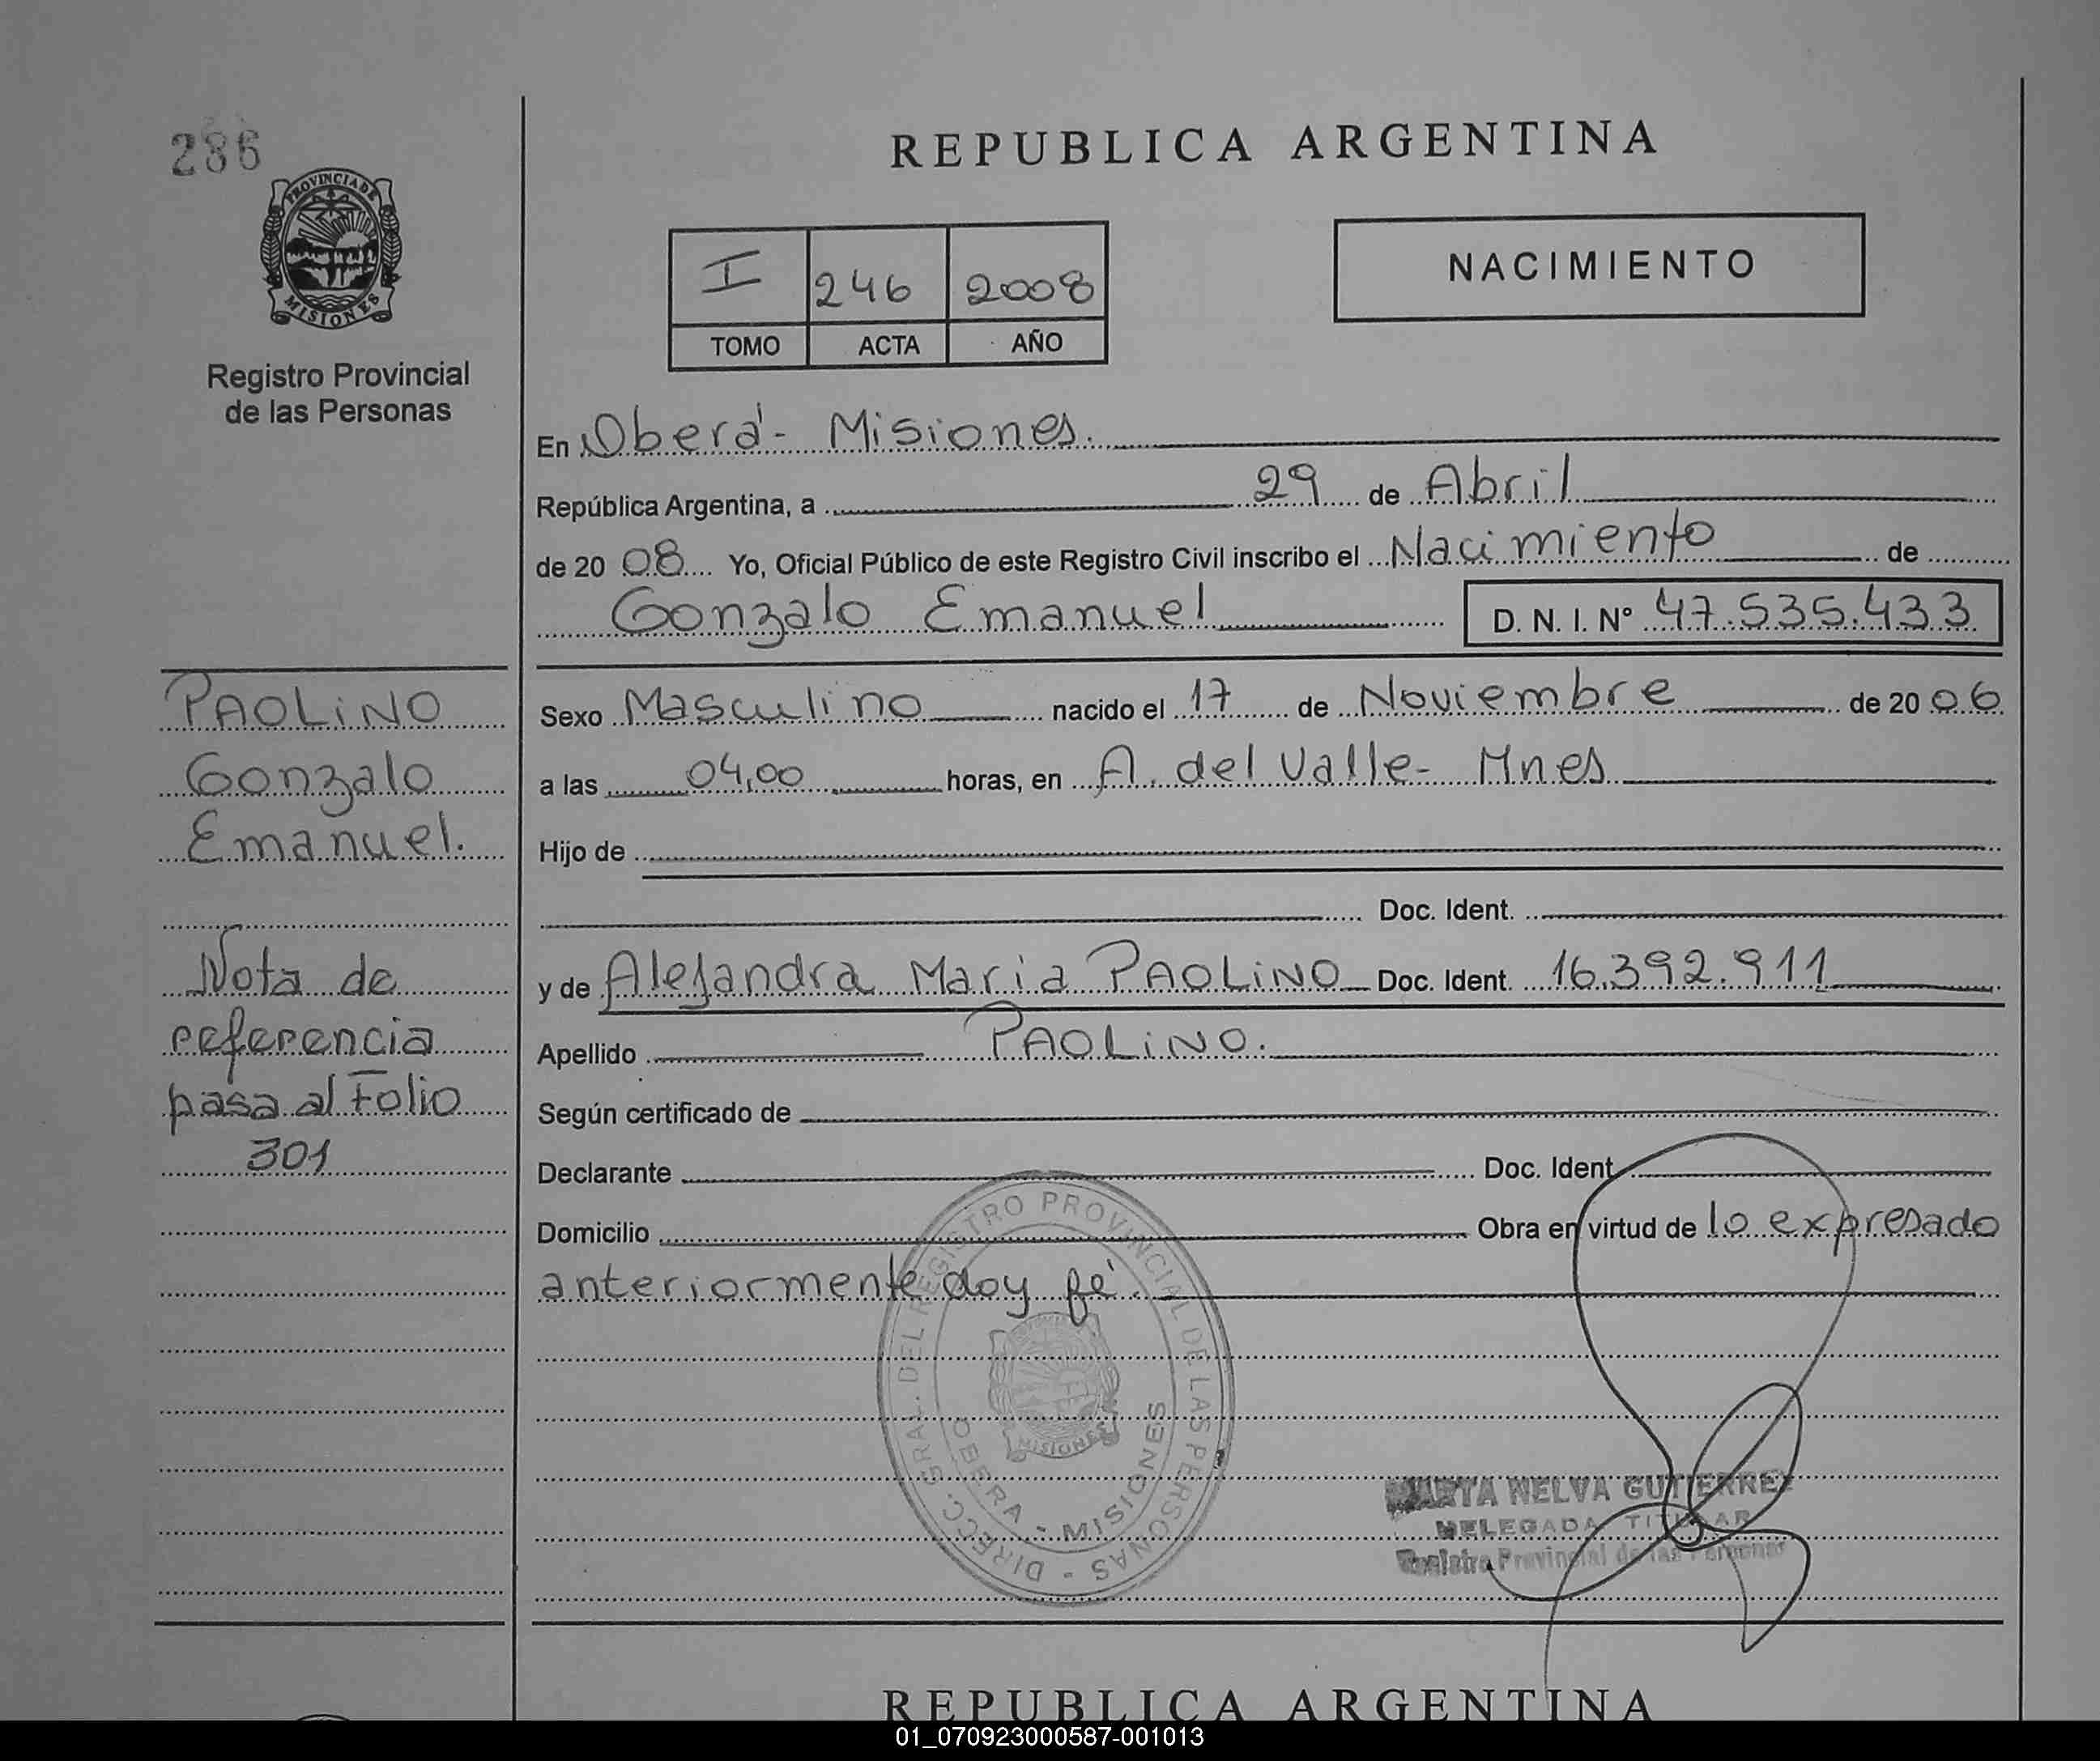 286
PROVINCIA DE
MISIONES
Registro Provincial
de las Personas
REPUBLICA ARGENTINA
I 246 2008
TOMO ACTA AÑO
NACIMIENTO
En Oberá - Misiones.
República Argentina, a 29 de Abril
de 20 08 Yo, Oficial Público de este Registro Civil inscribo el Nacimiento de
Gonzalo Emanuel D. N. I. Nº 47.535.433
Sexo Masculino nacido el 17 de Noviembre de 20 06
a las 04,00 horas, en A. del Valle - Mnes
Hijo de
Doc. Ident.
y de Alejandra Maria PAOLiNO Doc. Ident. 16.392.911
Apellido PAOLiNO.
Según certificado de
Declarante Doc. Ident.
Domicilio Obra en virtud de lo expresado
anteriormente doy fé.
PAOLiNO
Gonzalo
Emanuel.
Nota de
referencia
pasa al Folio
301
DIRECC. GRAL. DEL REGISTRO PROVINCIAL DE LAS PERSONAS -
OBERA - MISIONES
MISIONES
MARTA NELVA GUTIERREZ
DELEGADA TITULAR
Registro Provincial de las Personas
REPUBLICA ARGENTINA
01_070923000587-001013